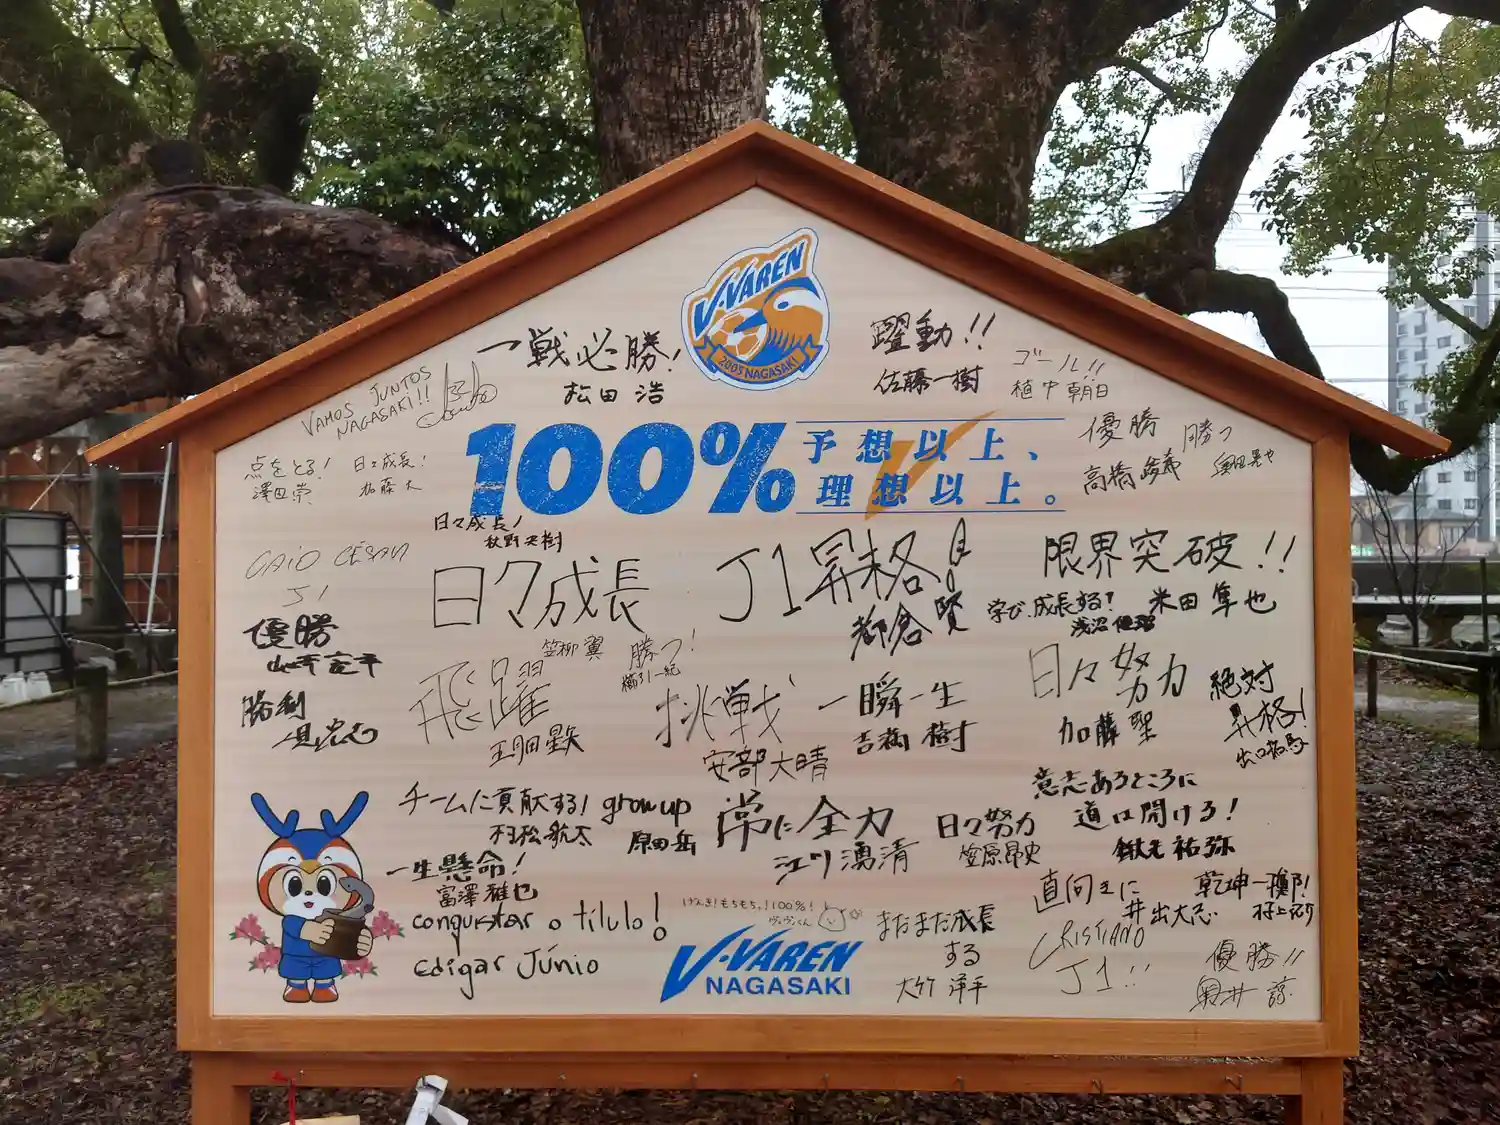 V·VAREN
2005 NAGASAKI
一戦必勝!
松田 浩
躍動!!
佐藤一樹
ゴール!!
植中朝日
VAMOS JUNTOS
NAGASAKI!!
100%
予想以上、
理想以上。
優勝
高橋
勝つ
点をとる!
澤田崇
日々成長!
加藤大
日々成長!
秋野央樹
CAIO CÉSAR
J1
日々成長
笠柳翼
J1昇格!
都倉賢
限界突破!!
米田隼也
学び、成長する!
浅沼優瑠
優勝
山
勝利
勝つ!
櫛引一紀
飛躍
五月田星矢
挑戦
安部大晴
一瞬一生
吉満 樹
日々努力
加藤 聖
絶対
昇格!
チームに貢献する!
村松航太
grow up
原田岳
常に全力
江川湧清
日々努力
笠原昂史
意志あるところに
道は開ける!
鍬先祐弥
一生懸命!
富澤雅也
conquistar o título!
Edigar Júnio
げんき!もちもち!100%!
ヴィヴィくん
V·VAREN
NAGASAKI
まだまだ成長
する
大竹 洋平
直向きに
井出大志
乾坤一擲!
CRISTIANO
J1!!
優勝!!
奥井 諒